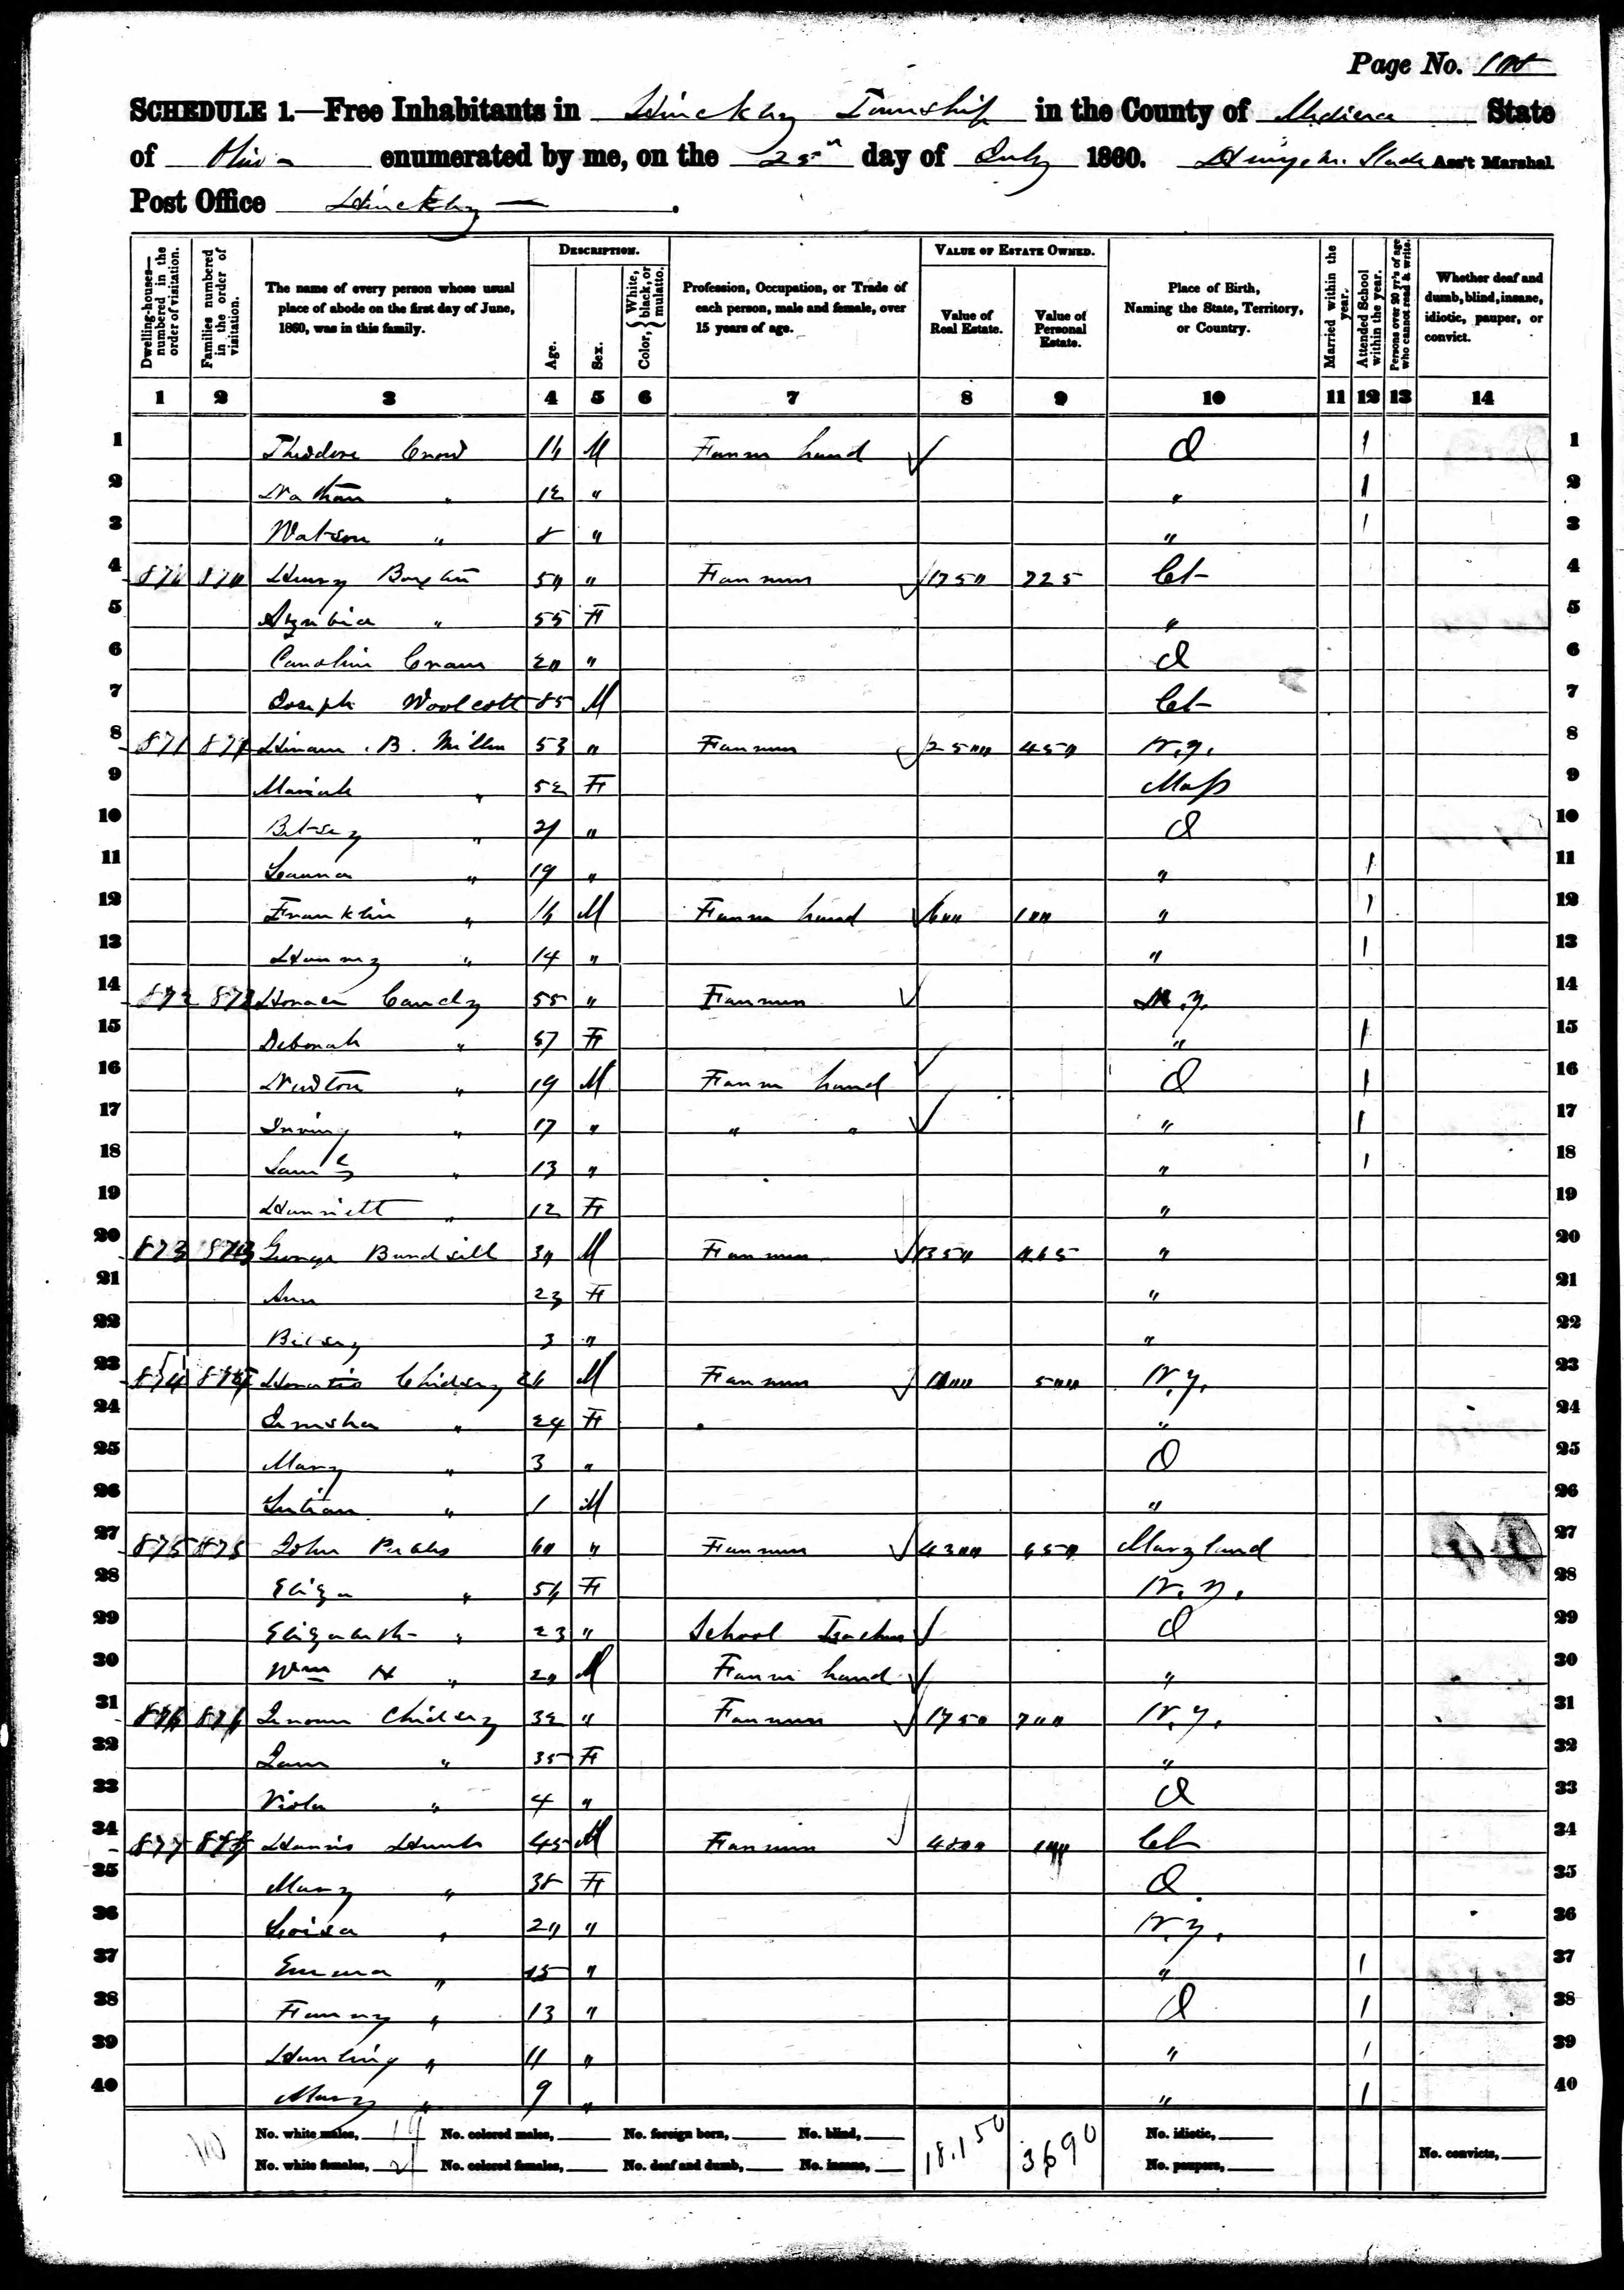 Page No.
SCHEDULE 1.—Free Inhabitants in Hinckley Township in the County of Medina State
of Ohio enumerated by me, on the 25th day of July 1860. Ass't Marshal.
Post Office Hinckley.
Dwelling-houses—numbered in the order of visitation.
Families numbered in the order of visitation.
The name of every person whose usual place of abode on the first day of June, 1860, was in this family.
DESCRIPTION.
Age.
Sex.
Color, { White, black, or mulatto.
Profession, Occupation, or Trade of each person, male and female, over 15 years of age.
VALUE OF ESTATE OWNED.
Value of Real Estate.
Value of Personal Estate.
Place of Birth, Naming the State, Territory, or Country.
Married within the year.
Attended School within the year.
Persons over 20 yr's of age who cannot read & write.
Whether deaf and dumb, blind, insane, idiotic, pauper, or convict.
1 2 3 4 5 6 7 8 9 10 11 12 13 14
1 Theodore 16 M Farm hand O 1 1
2 Nathan " 12 " " 1 2
3 Watson " 8 " " 1 3
4 870 870 Henry 50 " Farmer 1750 725 Ct 4
5 " 55 F " 5
6 Caroline 20 " O 6
7 Joseph Woolcott 85 M Ct 7
8 871 871 Hiram B. Miller 53 " Farmer 2500 450 N.Y. 8
9 Mariah " 52 F Mass 9
10 Betsey " 21 " O 10
11 " 19 " " 1 11
12 Franklin " 16 M Farm hand 600 100 " 1 12
13 " 14 " " 1 13
14 872 872 Horace 55 " Farmer N.Y. 14
15 Deborah " 57 F " 1 15
16 Newton " 19 M Farm hand O 1 16
17 Irving " 17 " " " " 1 17
18 " 13 " " 1 18
19 Harriett " 12 F " 19
20 873 873 George 30 M Farmer 1350 465 " 20
21 Ann 23 F " 21
22 Betsey 3 " " 22
23 874 874 Horatio Chidsey 26 M Farmer 500 N.Y. 23
24 " 24 F " 24
25 Mary " 3 " O 25
26 " 1 M " 26
27 875 875 John 60 " Farmer 4300 650 Maryland 27
28 Eliza " 56 F N.Y. 28
29 Elizabeth " 23 " School Teacher O 29
30 Wm H " 20 M Farm hand " 30
31 876 876 Chidsey 32 " Farmer 1750 700 N.Y. 31
32 Jane " 35 F " 32
33 Viola " 4 " O 33
34 877 877 45 M Farmer Ct 34
35 Mary " 38 F O 35
36 Loisa " 20 " N.Y. 36
37 Emma " 15 " " 1 37
38 Fanny " 13 " O 1 38
39 " 11 " " 1 39
40 Mary " 9 " " 1 40
No. white males, 19 No. colored males, No. foreign born, No. blind, 18.150 3690 No. idiotic,
No. white females, 21 No. colored females, No. deaf and dumb, No. insane, No. paupers, No. convicts,